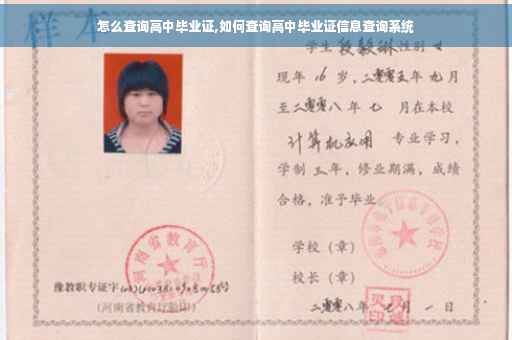 怎么查询高中毕业证,如何查询高中毕业证信息查询系统
样本
学生 段毅琳 性别 女
现年 16 岁,二零零五年 九 月
至二零零八 年 七 月在本校
计算机应用 专业学习,
学制 三 年,修业期满,成绩
合格,准予毕业
学校(章)
校长(章)
豫教职专证字
(河南省教育厅验印)
二零零八年 七 月 一 日
河南省教育厅